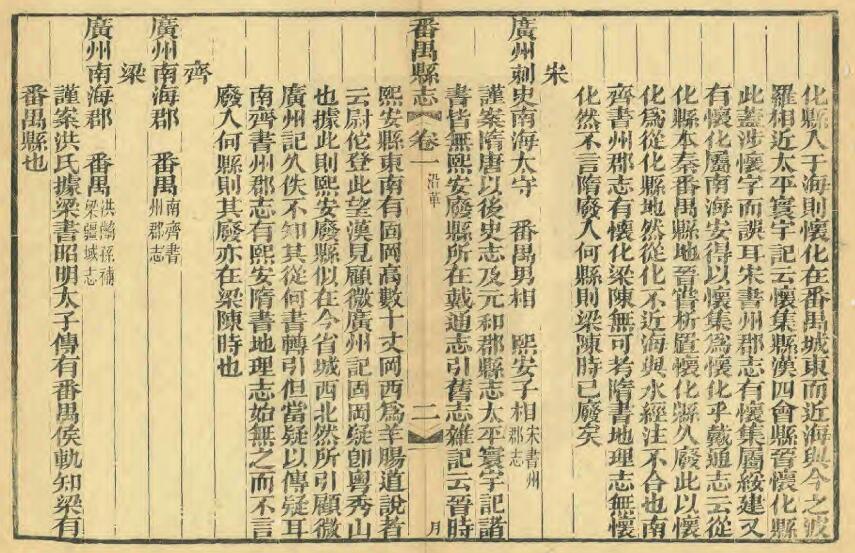 化縣入于海則懷化在番禺城東而近海與今之波
羅相近太平寰宇記云懷集縣漢四會縣晉懷化縣
此蓋涉懷字而誤耳宋書州郡志有懷集屬綏建又
有懷化屬南海安得以懷集爲懷化乎戴通志云從
化縣本秦番禺縣地晉嘗析置懷化縣久廢此以懷
化爲從化縣地然從化不近海與水經注不合也南
齊書州郡志有懷化梁陳無可考隋書地理志無懷
化然不言隋廢入何縣則梁陳時已廢矣
宋
廣州刺史南海太守 番禺男相 熙安子相宋書州郡志
謹案隋唐以後史志及元和郡縣志太平寰宇記諸
書皆無熙安廢縣所在戴通志引舊志雜記云晉時
番禺縣志 卷一 沿革 二 月
熙安縣東南有固岡高數十丈岡西爲羊腸道說者
云尉佗登此望漢見顧微廣州記固岡疑卽粵秀山
也據此則熙安廢縣似在今省城西北然所引顧微
廣州記久佚不知其從何書轉引但當疑以傳疑耳
南齊書州郡志有熙安隋書地理志始無之而不言
廢入何縣則其廢亦在梁陳時也
齊
廣州南海郡 番禺南齊書州郡志
梁
廣州南海郡 番禺洪齮孫補梁疆域志
謹案洪氏據梁書昭明太子傳有番禺侯軌知梁有
番禺縣也